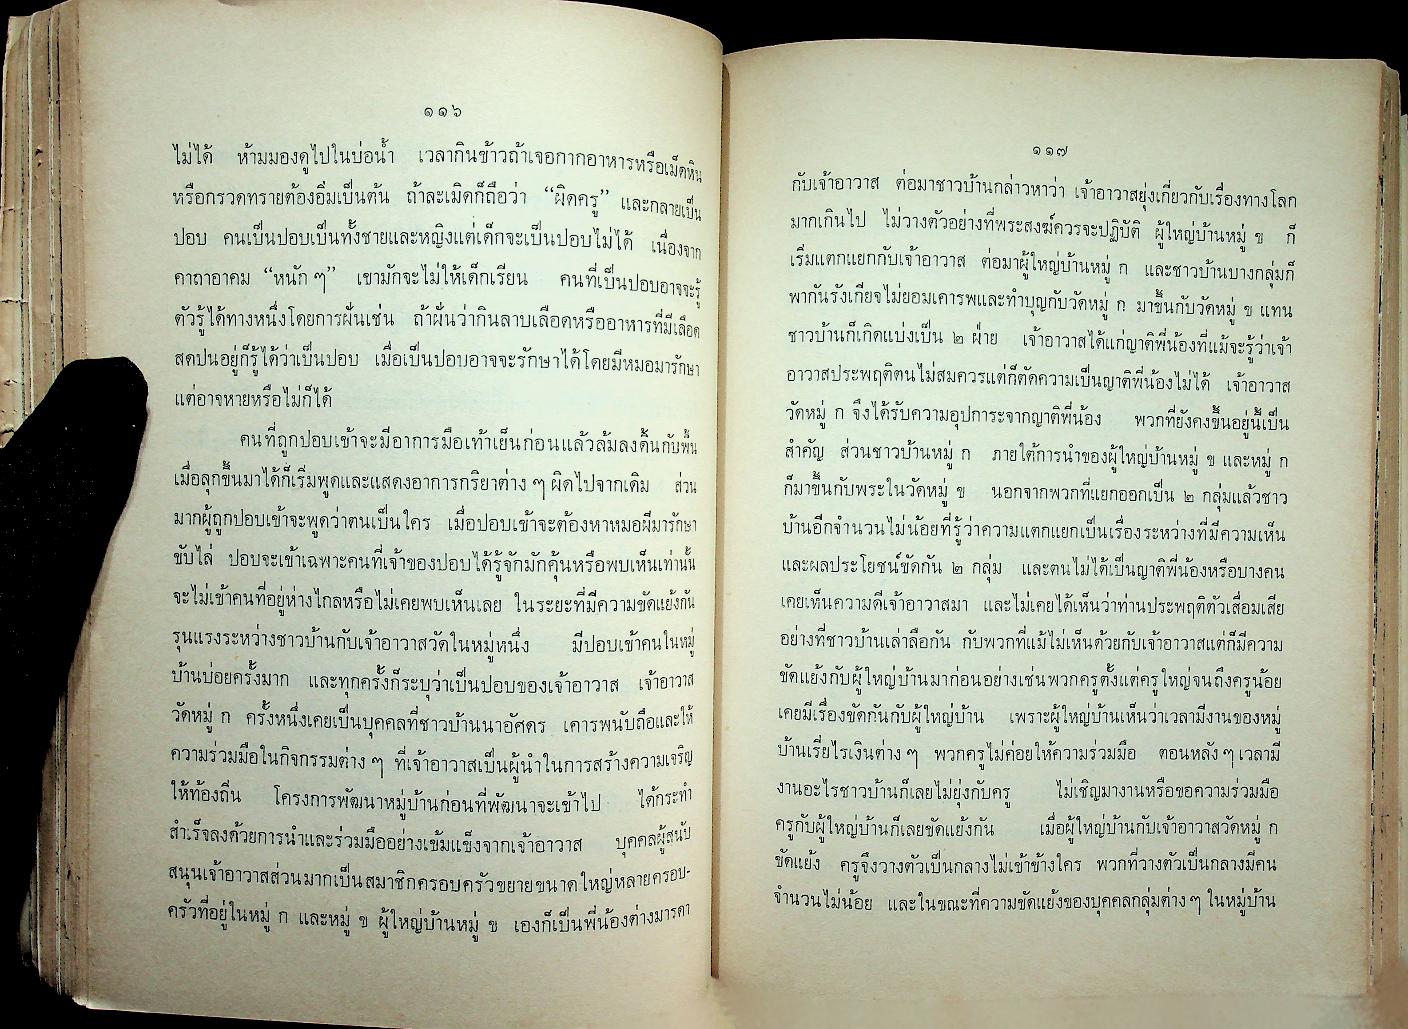 ๑๑๖
ไม่ได้ ห้ามมองดูไปในบ่อน้ำ เวลากินข้าวถ้าเจอกากอาหารหรือเม็ดหิน
หรือกรวดทรายต้องอิ่มเป็นต้น ถ้าละเมิดก็ถือว่า “ผิดครู” และกลายเป็น
ปอบ คนเป็นปอบเป็นทั้งชายและหญิงแต่เด็กจะเป็นปอบไม่ได้ เนื่องจาก
คาถาอาคม “หนัก ๆ” เขามักจะไม่ให้เด็กเรียน คนที่เป็นปอบอาจจะรู้
ตัวรู้ได้ทางหนึ่งโดยการฝันเช่น ถ้าฝันว่ากินลาบเลือดหรืออาหารที่มีเลือด
สดปนอยู่ก็รู้ได้ว่าเป็นปอบ เมื่อเป็นปอบอาจจะรักษาได้โดยมีหมอมารักษา
แต่อาจหายหรือไม่ก็ได้
คนที่ถูกปอบเข้าจะมีอาการมือเท้าเย็นก่อนแล้วล้มลงดิ้นกับพื้น
เมื่อลุกขึ้นมาได้ก็เริ่มพูดและแสดงอาการกริยาต่าง ๆ ผิดไปจากเดิม ส่วน
มากผู้ถูกปอบเข้าจะพูดว่าตนเป็นใคร เมื่อปอบเข้าจะต้องหาหมอผีมารักษา
ขับไล่ ปอบจะเข้าเฉพาะคนที่เจ้าของปอบได้รู้จักมักคุ้นหรือพบเห็นเท่านั้น
จะไม่เข้าคนที่อยู่ห่างไกลหรือไม่เคยพบเห็นเลย ในระยะที่มีความขัดแย้งกัน
รุนแรงระหว่างชาวบ้านกับเจ้าอาวาสวัดในหมู่หนึ่ง มีปอบเข้าคนในหมู่
บ้านบ่อยครั้งมาก และทุกครั้งก็ระบุว่าเป็นปอบของเจ้าอาวาส เจ้าอาวาส
วัดหมู่ ก ครั้งหนึ่งเคยเป็นบุคคลที่ชาวบ้านนาอัศดร เคารพนับถือและให้
ความร่วมมือในกิจกรรมต่าง ๆ ที่เจ้าอาวาสเป็นผู้นำในการสร้างความเจริญ
ให้ท้องถิ่น โครงการพัฒนาหมู่บ้านก่อนที่พัฒนาจะเข้าไป ได้กระทำ
สำเร็จลงด้วยการนำและร่วมมืออย่างเข้มแข็งจากเจ้าอาวาส บุคคลผู้สนับ
สนุนเจ้าอาวาสส่วนมากเป็นสมาชิกครอบครัวขยายขนาดใหญ่หลายครอบ-
ครัวที่อยู่ในหมู่ ก และหมู่ ข ผู้ใหญ่บ้านหมู่ ข เองก็เป็นพี่น้องต่างมารดา
๑๑๗
กับเจ้าอาวาส ต่อมาชาวบ้านกล่าวหาว่า เจ้าอาวาสยุ่งเกี่ยวกับเรื่องทางโลก
มากเกินไป ไม่วางตัวอย่างที่พระสงฆ์ควรจะปฏิบัติ ผู้ใหญ่บ้านหมู่ ข ก็
เริ่มแตกแยกกับเจ้าอาวาส ต่อมาผู้ใหญ่บ้านหมู่ ก และชาวบ้านบางกลุ่มก็
พากันรังเกียจไม่ยอมเคารพและทำบุญกับวัดหมู่ ก มาขึ้นกับวัดหมู่ ข แทน
ชาวบ้านก็เกิดแบ่งเป็น ๒ ฝ่าย เจ้าอาวาสได้แก่ญาติพี่น้องที่แม้จะรู้ว่าเจ้า
อาวาสประพฤติตนไม่สมควรแต่ก็ตัดความเป็นญาติพี่น้องไม่ได้ เจ้าอาวาส
วัดหมู่ ก จึงได้รับความอุปการะจากญาติพี่น้อง พวกที่ยังคงขึ้นอยู่นี้เป็น
สำคัญ ส่วนชาวบ้านหมู่ ก ภายใต้การนำของผู้ใหญ่บ้านหมู่ ข และหมู่ ก
ก็มาขึ้นกับพระในวัดหมู่ ข นอกจากพวกที่แยกออกเป็น ๒ กลุ่มแล้วชาว
บ้านอีกจำนวนไม่น้อยที่รู้ว่าความแตกแยกเป็นเรื่องระหว่างที่มีความเห็น
และผลประโยชน์ขัดกัน ๒ กลุ่ม และตนไม่ได้เป็นญาติพี่น้องหรือบางคน
เคยเห็นความดีเจ้าอาวาสมา และไม่เคยได้เห็นว่าท่านประพฤติตัวเสื่อมเสีย
อย่างที่ชาวบ้านเล่าลือกัน กับพวกที่แม้ไม่เห็นด้วยกับเจ้าอาวาสแต่ก็มีความ
ขัดแย้งกับผู้ใหญ่บ้านมาก่อนอย่างเช่นพวกครูตั้งแต่ครูใหญ่จนถึงครูน้อย
เคยมีเรื่องขัดกันกับผู้ใหญ่บ้าน เพราะผู้ใหญ่บ้านเห็นว่าเวลามีงานของหมู่
บ้านเรี่ยไรเงินต่าง ๆ พวกครูไม่ค่อยให้ความร่วมมือ ตอนหลัง ๆ เวลามี
งานอะไรชาวบ้านก็เลยไม่ยุ่งกับครู ไม่เชิญมางานหรือขอความร่วมมือ
ครูกับผู้ใหญ่บ้านก็เลยขัดแย้งกัน เมื่อผู้ใหญ่บ้านกับเจ้าอาวาสวัดหมู่ ก
ขัดแย้ง ครูจึงวางตัวเป็นกลางไม่เข้าข้างใคร พวกที่วางตัวเป็นกลางมีคน
จำนวนไม่น้อย และในขณะที่ความขัดแย้งของบุคคลกลุ่มต่าง ๆ ในหมู่บ้าน